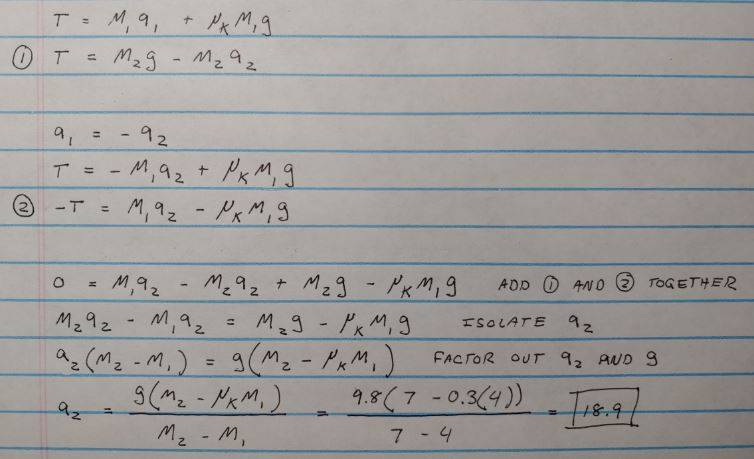 T = M₁a₁ + μₖM₁g
① T = M₂g - M₂a₂
a₁ = -a₂
T = -M₁a₂ + μₖM₁g
② -T = M₁a₂ - μₖM₁g
0 = M₁a₂ - M₂a₂ + M₂g - μₖM₁g ADD ① AND ② TOGETHER
M₂a₂ - M₁a₂ = M₂g - μₖM₁g ISOLATE a₂
a₂(M₂ - M₁) = g(M₂ - μₖM₁) FACTOR OUT a₂ AND g
a₂ = g(M₂ - μₖM₁) / M₂ - M₁ = 9.8(7 - 0.3(4)) / 7 - 4 = 18.9